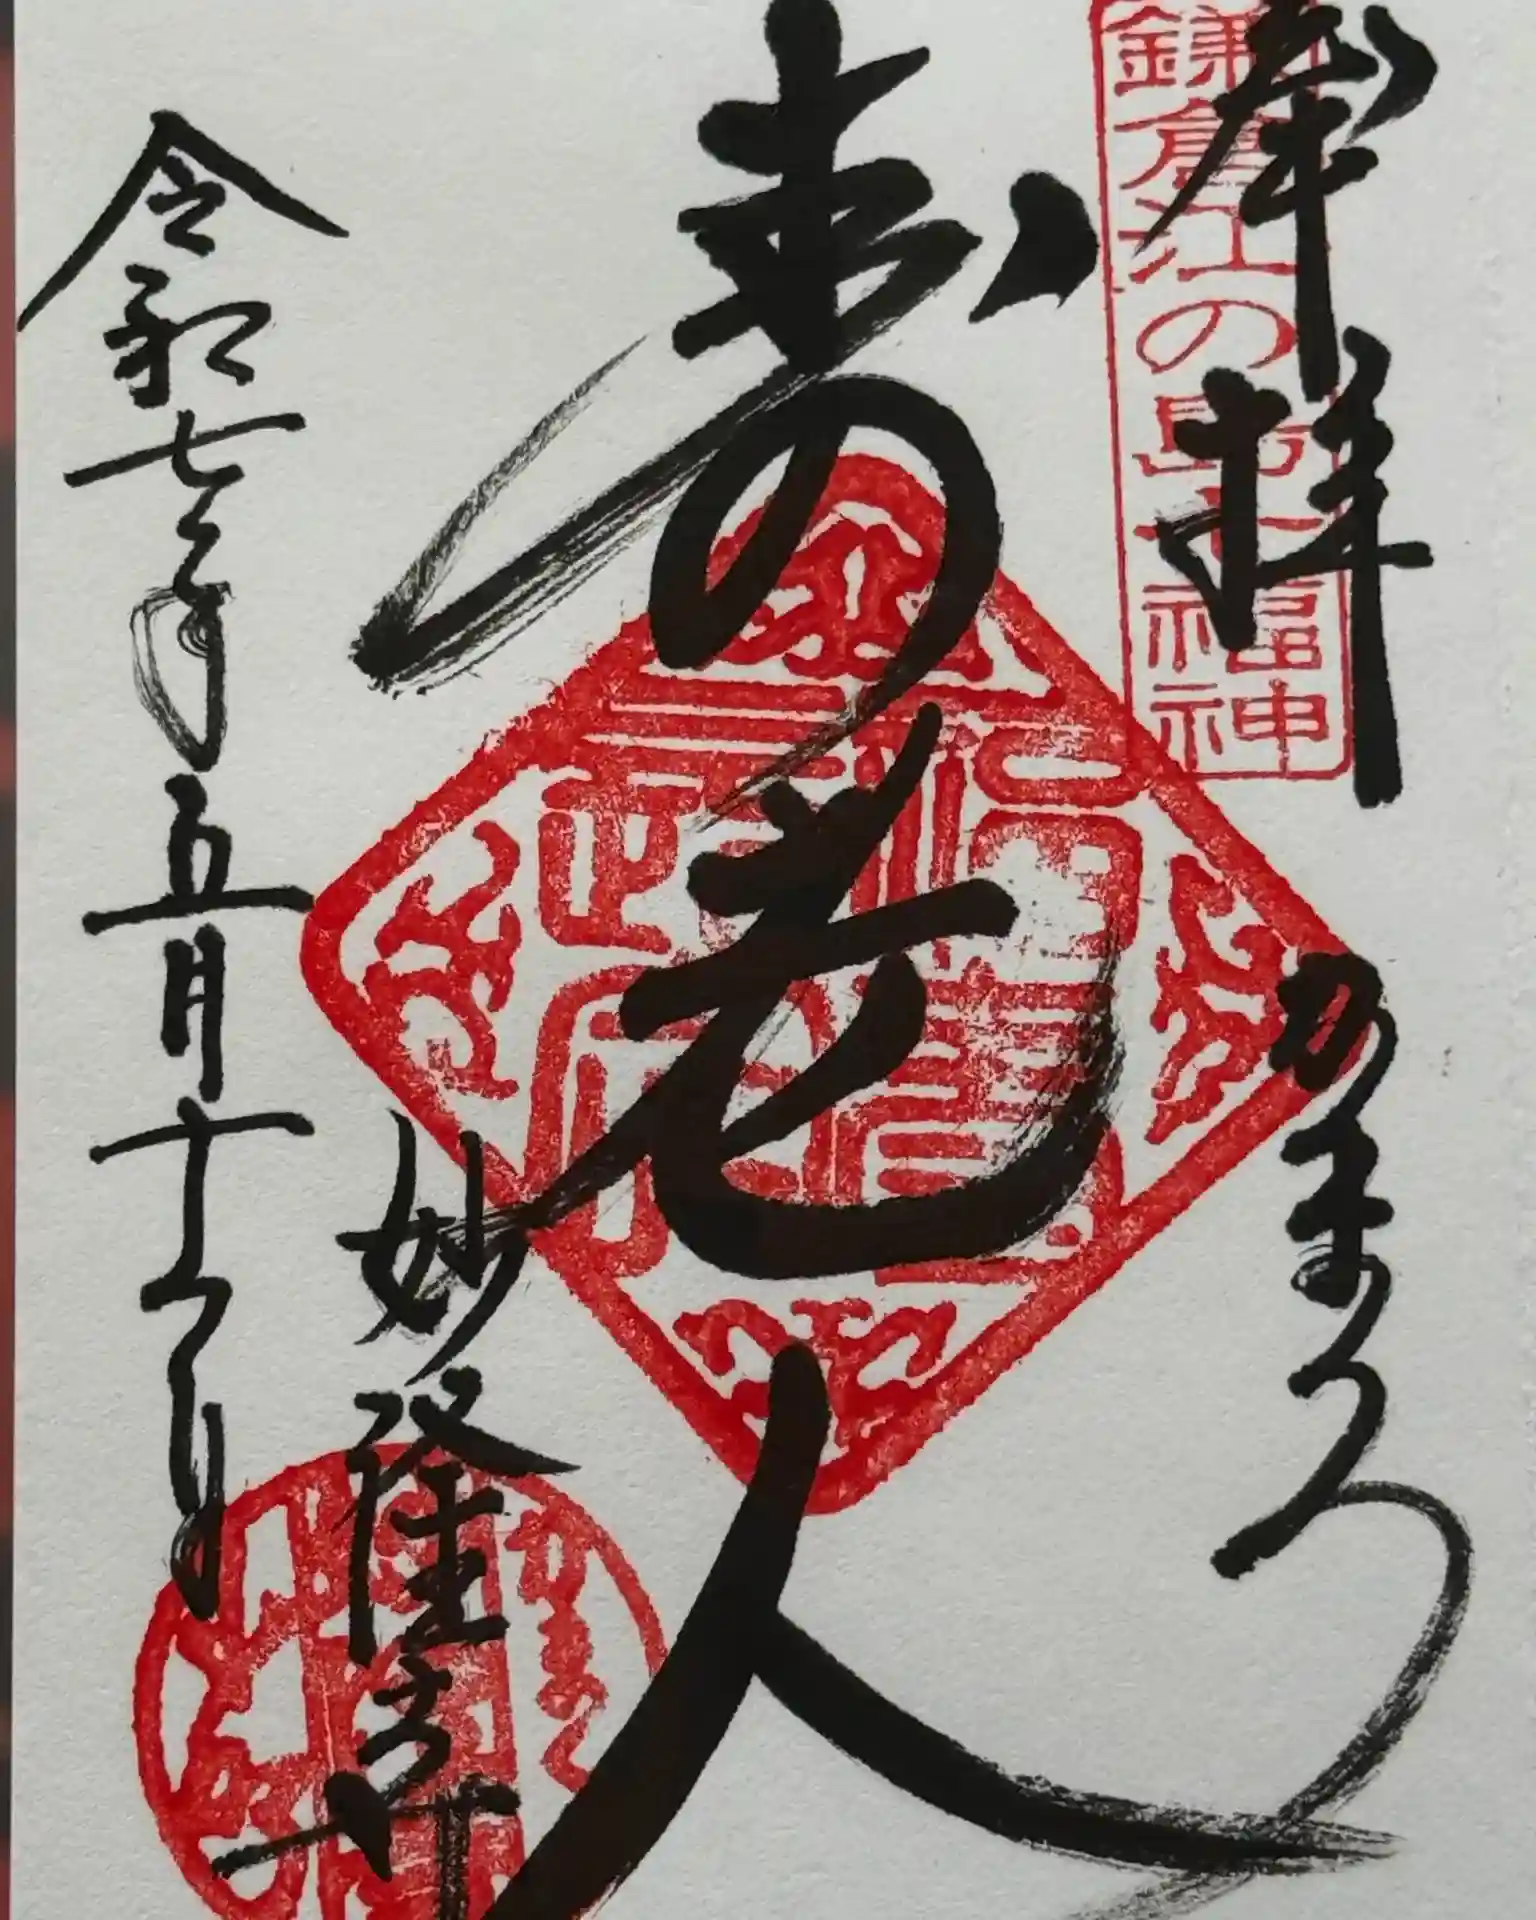 奉拝
鎌倉江の島七福神
かまくら
寿老人
妙隆寺
令和七年五月十一日